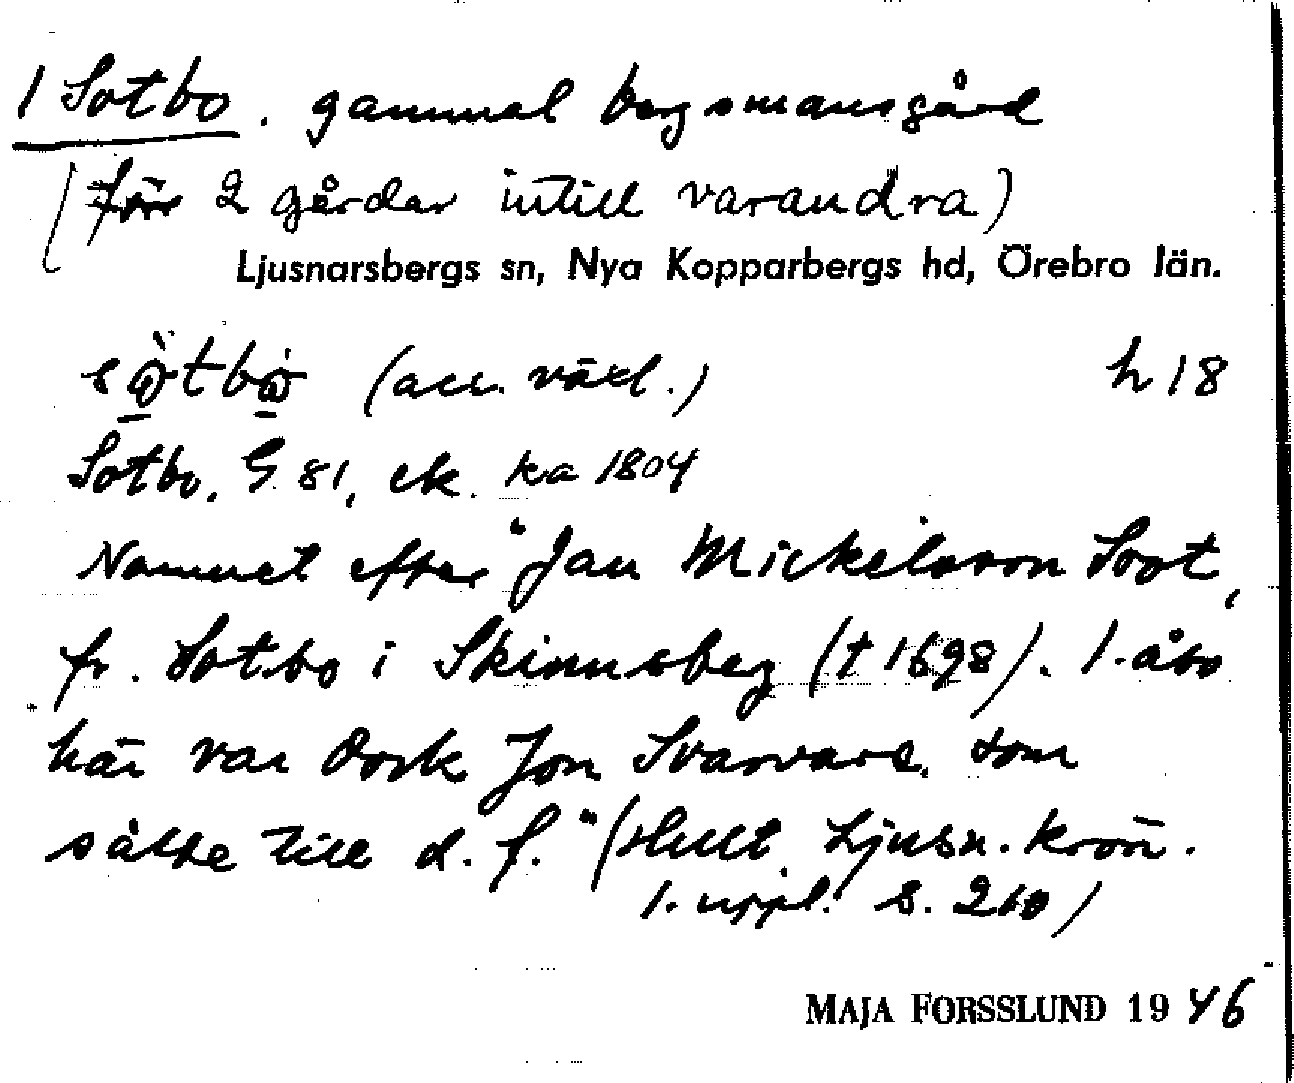 1 Sotbo. gammal bergsmansgård
(förr 2 gårdar intill varandra)
Ljusnarsbergs sn, Nya Kopparbergs hd, Örebro län.
(acc. växl.) h 18
Sotbo, G 81, ek. ka 1804
Namnet efter "Jan Mickelsson Soot,
fr. Sotbo i Skinnsberg († 1698). 1. åbo
här var dock Jon Svarvare, som
sålde till d. f." (Hult Ljusn. krön.
1. uppl. s. 210)
MAJA FORSSLUND 1946